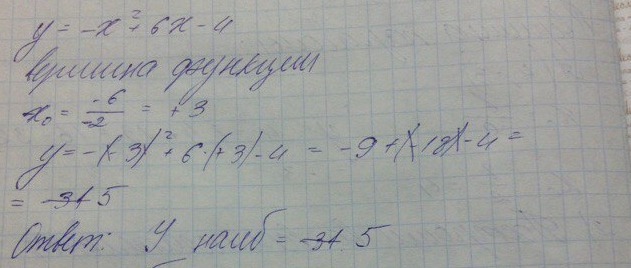 y = -x² + 6x - 4
вершина функции
x₀ = -6/-2 = +3
y = -(-3)² + 6·(+3) - 4 = -9 + (-18) - 4 =
= 5
Ответ: У наиб = 5